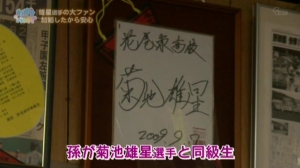 雄星選手の大ファン
加組したから安心
花巻東高校
菊池雄星
2009.9.8
孫が菊池雄星選手と同級生